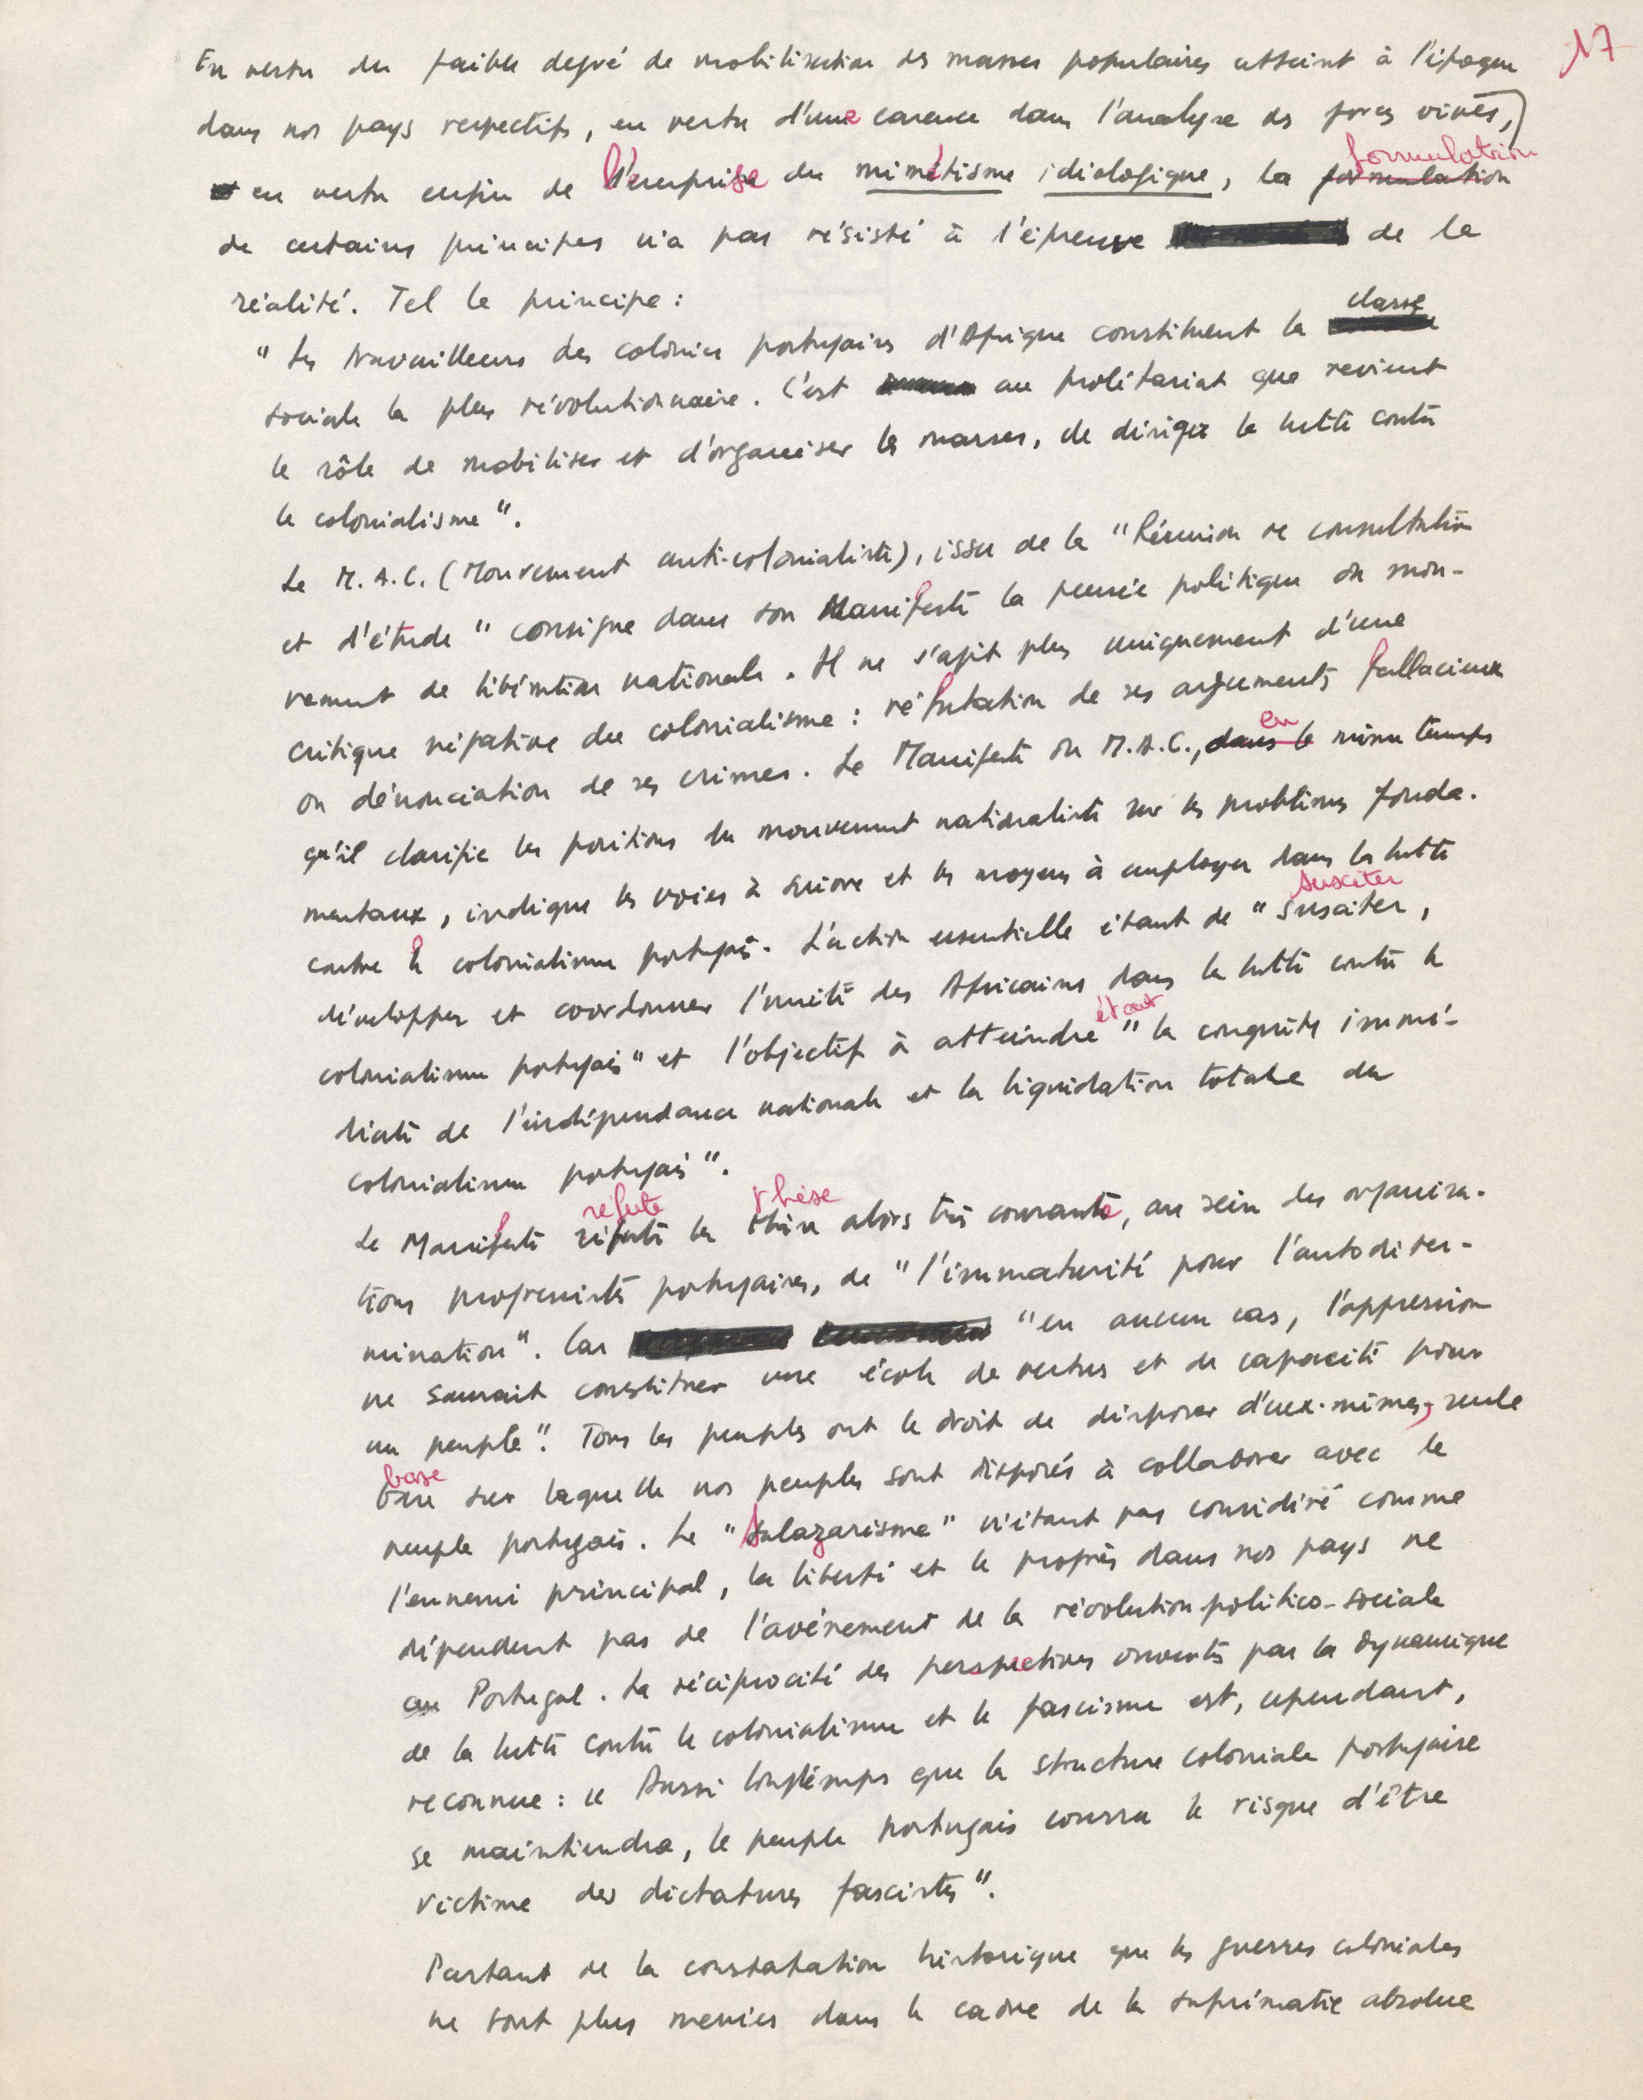 17
En vertu du faible degré de mobilisation des masses populaires atteint à l'époque
dans nos pays respectifs, en vertu d'une carence dans l'analyse des forces vives,
en vertu enfin de l'emprise du mimétisme idéologique, la formulation
de certains principes n'a pas résisté à l'épreuve de la
réalité. Tel le principe :
"Les travailleurs des colonies portugaises d'Afrique constituent la classe
sociale la plus révolutionnaire. C'est au prolétariat que revient
le rôle de mobiliser et d'organiser les masses, de diriger la lutte contre
le colonialisme".
Le M.A.C. (Mouvement anti-colonialiste), issu de la "Réunion de consultation
et d'étude" consigne dans son Manifeste la pensée politique du mou-
vement de libération nationale. Il ne s'agit plus uniquement d'une
critique négative du colonialisme : réfutation de ses arguments fallacieux
ou dénonciation de ses crimes. Le Manifeste du M.A.C., en même temps
qu'il clarifie les positions du mouvement nationaliste sur les problèmes fonda-
mentaux, indique les voies à suivre et les moyens à employer dans la lutte
contre le colonialisme portugais. L'action essentielle étant de "susciter,
développer et coordonner l'unité des Africains dans la lutte contre le
colonialisme portugais" et l'objectif à atteindre étant "la conquête immé-
diate de l'indépendance nationale et la liquidation totale du
colonialisme portugais".
Le Manifeste réfute la thèse alors très courante, au sein des organisa-
tions progressistes portugaises, de "l'immaturité pour l'autodéter-
mination". Car "en aucun cas, l'oppression
ne saurait constituer une école de vertus et de capacité pour
un peuple". Tous les peuples ont le droit de disposer d'eux-mêmes, seule
base sur laquelle nos peuples sont disposés à collaborer avec le
peuple portugais. Le "Salazarisme" n'étant pas considéré comme
l'ennemi principal, la liberté et le progrès dans nos pays ne
dépendent pas de l'avénement de la révolution politico-sociale
au Portugal. La réciprocité des perspectives ouvertes par la dynamique
de la lutte contre le colonialisme et le fascisme est, cependant,
reconnue : "Aussi longtemps que la structure coloniale portugaise
se maintiendra, le peuple portugais courra le risque d'être
victime des dictatures fascistes".
Partant de la constatation historique que les guerres coloniales
ne sont plus menées dans le cadre de la suprématie absolue